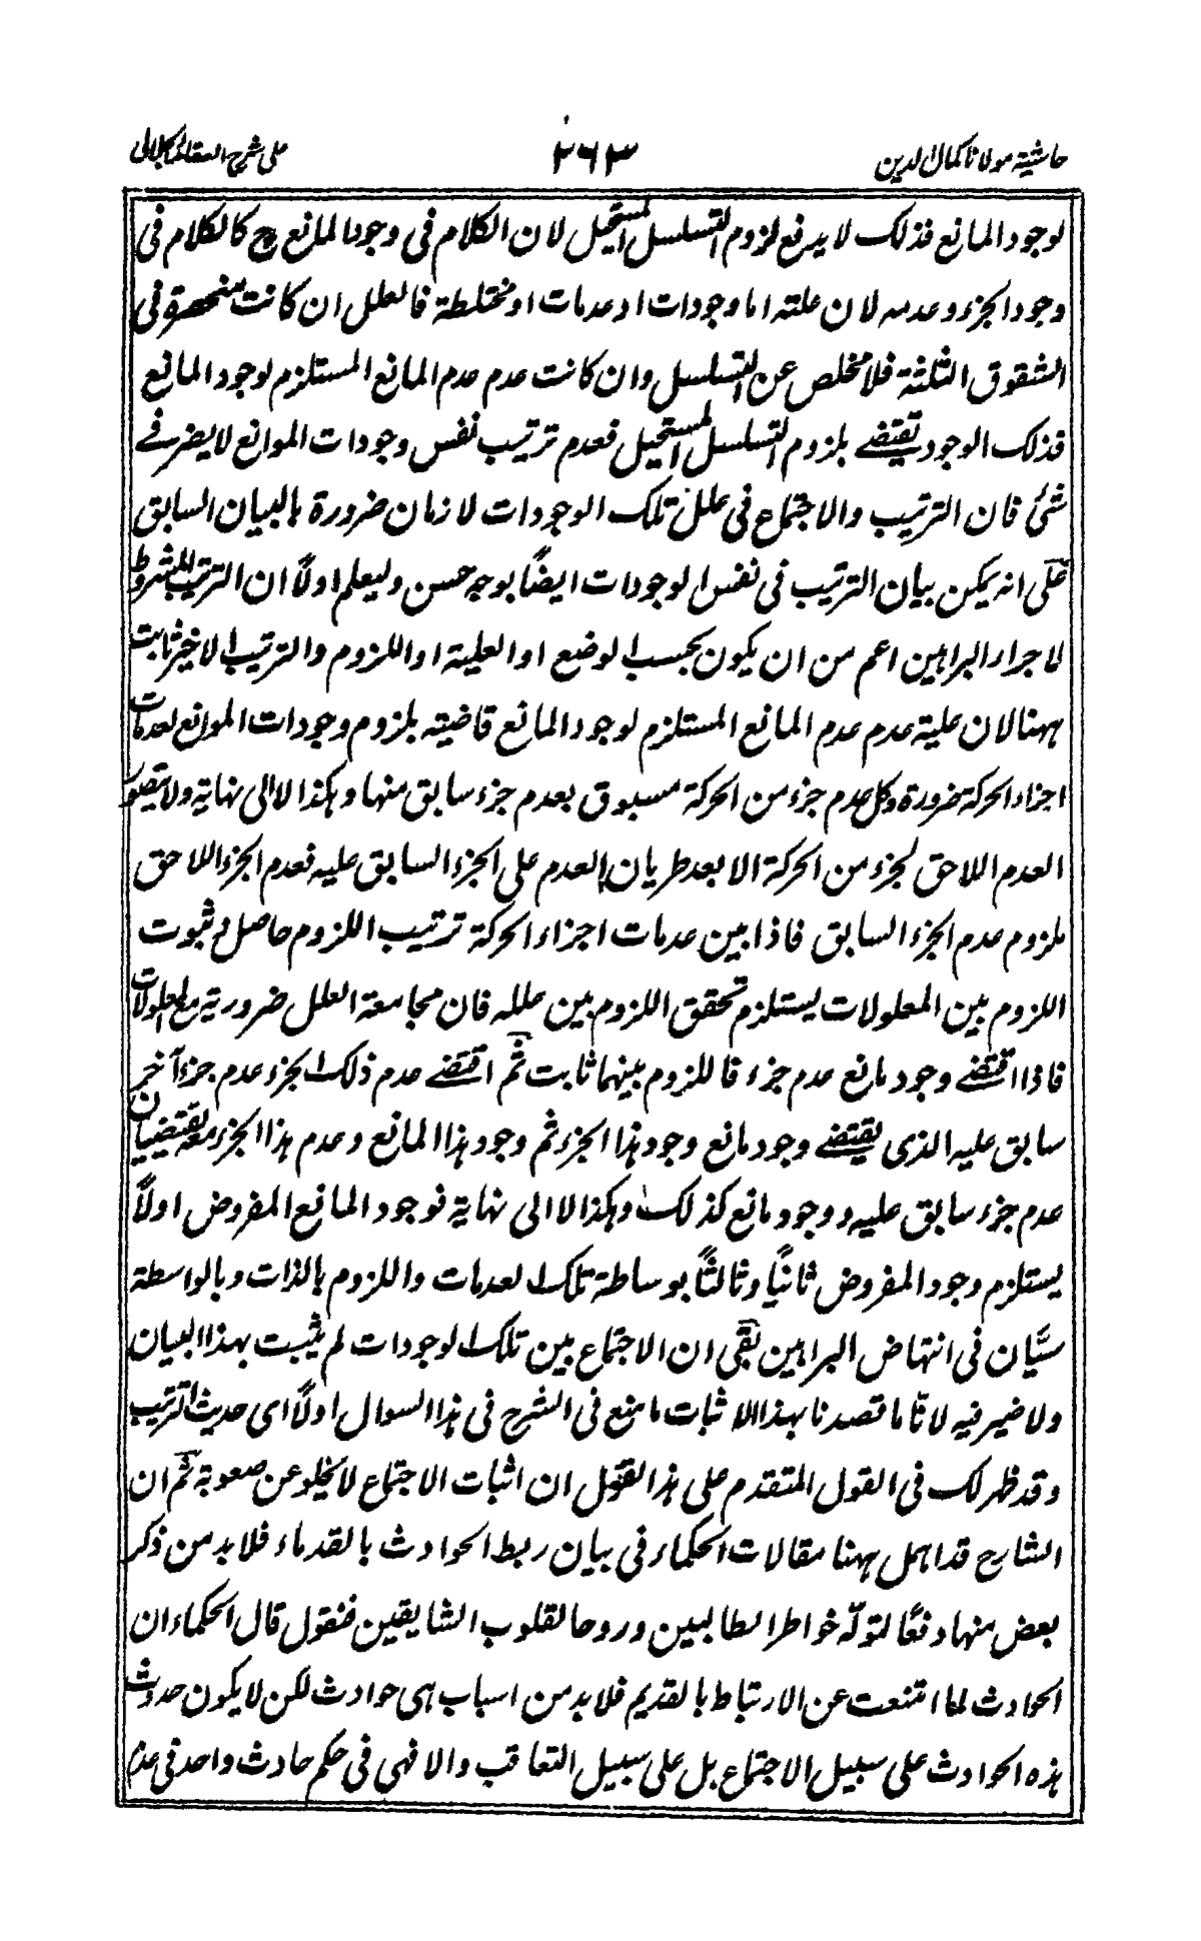 حاشية مولانا كمال الدين
٢٦٣
على شرح العقائد الجلالى
لوجود المانع فذلك لا يدفع لزوم التسلسل المستحيل لان الكلام فى وجود المانع ح كالكلام فى
وجود الجزء وعدمه لان علته اما وجودات او عدمات او مختلطة فالعلل ان كانت منحصرة فى
الشقوق الثلثة فلا مخلص عن التسلسل وان كانت عدم عدم المانع المستلزم لوجود المانع
فذلك الوجود يقتضے بلزوم التسلسل المستحيل فعدم ترتيب نفس وجودات الموانع لا يضر فے
شئ فان الترتيب والاجتماع فى علل تلك الوجودات لازمان ضرورة بالبيان السابق
على انه يمكن بيان الترتيب فى نفس الوجودات ايضًا بوجه حسن وليعلم اولًا ان الترتيب المشروط
لاجراء البراهين اعم من ان يكون بحسب الوضع او العلية او اللزوم والترتيب الاخير ثابت
ههنا لان علية عدم عدم المانع المستلزم لوجود المانع قاضيته بلزوم وجودات الموانع لعدمات
اجزاء الحركة ضرورة وكل عدم جزء من الحركة مسبوق بعدم جزء سابق منها وهكذا لا الى نهاية ولا يتصور
العدم اللاحق لجزء من الحركة الا بعد طريان العدم على الجزء السابق عليه فعدم الجزء اللاحق
ملزوم عدم الجزء السابق فاذا بين عدمات اجزاء الحركة ترتيب اللزوم حاصل وثبوت
اللزوم بين المعلولات يستلزم تحقق اللزوم بين علله فان مجامعة العلل ضرورية مع المعلولات
فاذا اقتضے وجود مانع عدم جزء فاللزوم بينهما ثابت ثم اقتضے عدم ذلك الجزء عدم جزء آخر
سابق عليه الذى يقتضے وجود مانع وجود هذا الجزء ثم وجود هذا المانع وعدم هذا الجزء معه يقتضيان
عدم جزء سابق عليه ووجود مانع كذلك وهكذا لا الى نهاية فوجود المانع المفروض اولًا
يستلزم وجود المفروض ثانيًا وثالثًا بوساطة تلك العدمات واللزوم بالذات وبالواسطة
سيّان فى انتهاض البراهين بقى ان الاجتماع بين تلك الوجودات لم يثبت بهذا البيان
ولا ضير فيه لانّا ما قصدنا بهذا الا اثبات ما منع فى الشرح فى هذا السوال اولًا اى حديث الترتيب
وقد ظهر لك فى القول المتقدم على هذا القول ان اثبات الاجتماع لا يخلو عن صعوبة ثم ان
الشارح قد اهمل ههنا مقالات الحكماء فى بيان ربط الحوادث بالقدماء فلا بد من ذكر
بعض منها دفعًا لتولّه خواطر الطالبين وروحا لقلوب الشايقين فنقول قال الحكماء ان
الحوادث لما امتنعت عن الارتباط بالقديم فلا بد من اسباب هى حوادث لكن لا يكون حدوث
هذه الحوادث على سبيل الاجتماع بل على سبيل التعاقب والا فهى فى حكم حادث واحد فى عدم